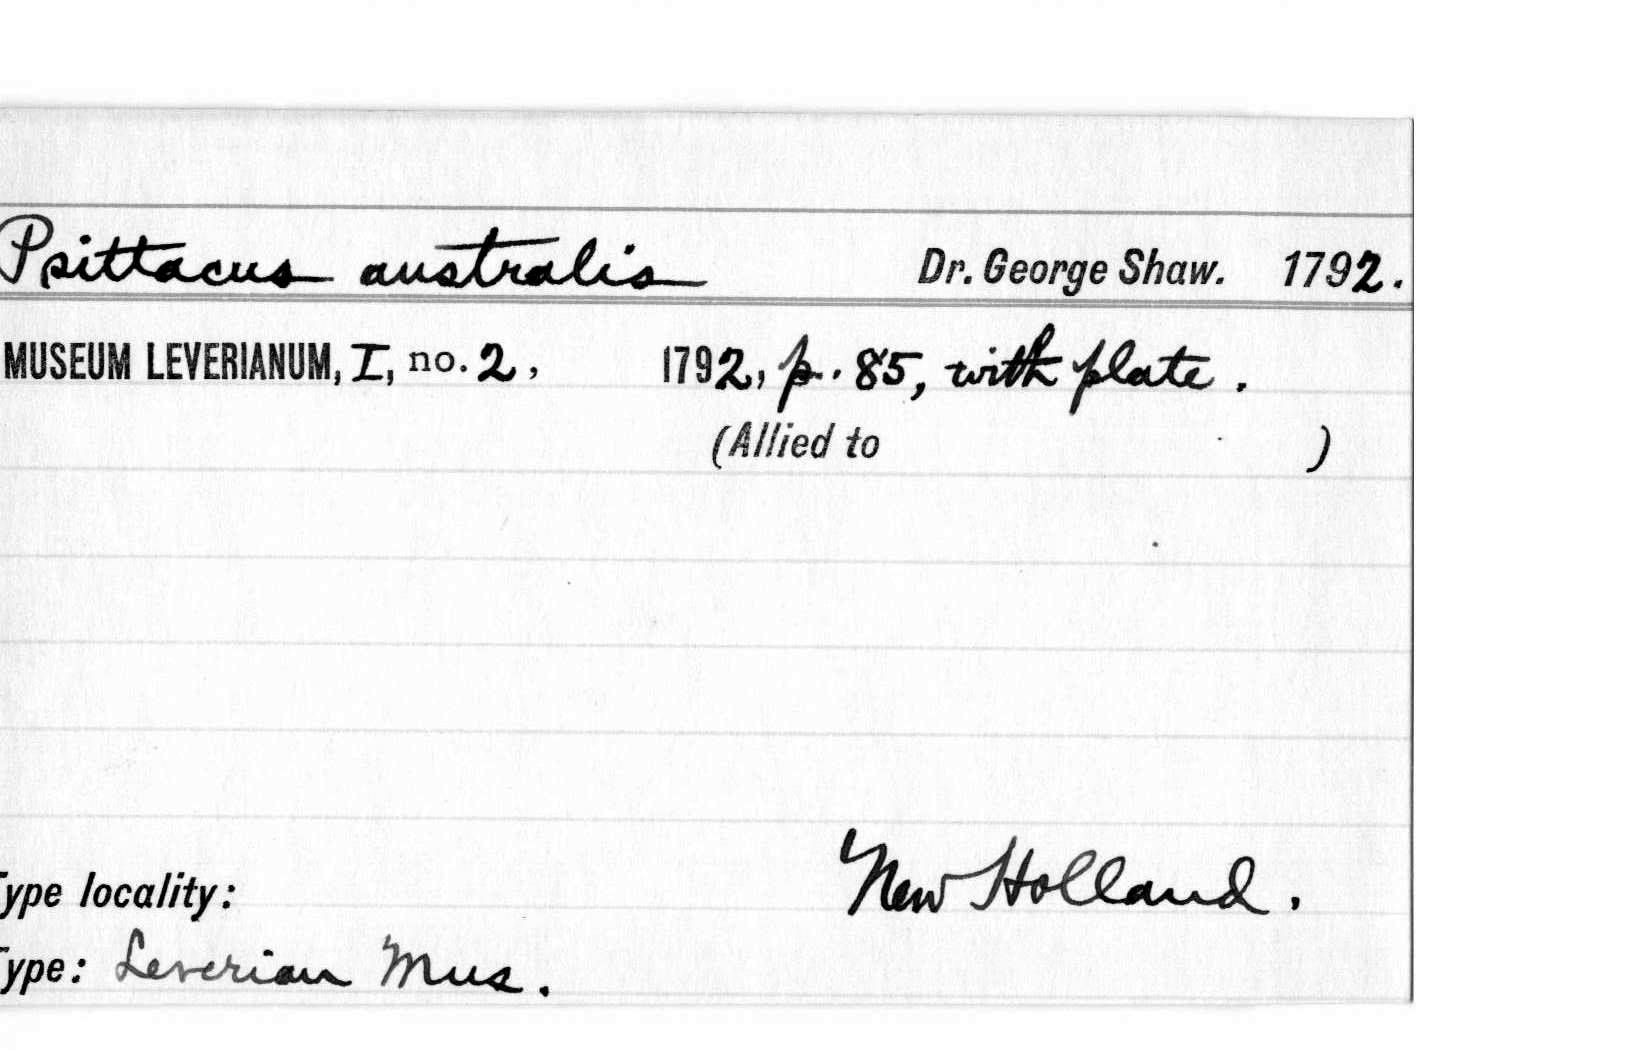 Psittacus australis Dr. George Shaw. 1792.
MUSEUM LEVERIANUM, I, no. 2, 1792, p. 85, with plate.
(Allied to )
Type locality: New Holland.
Type: Leverian Mus.